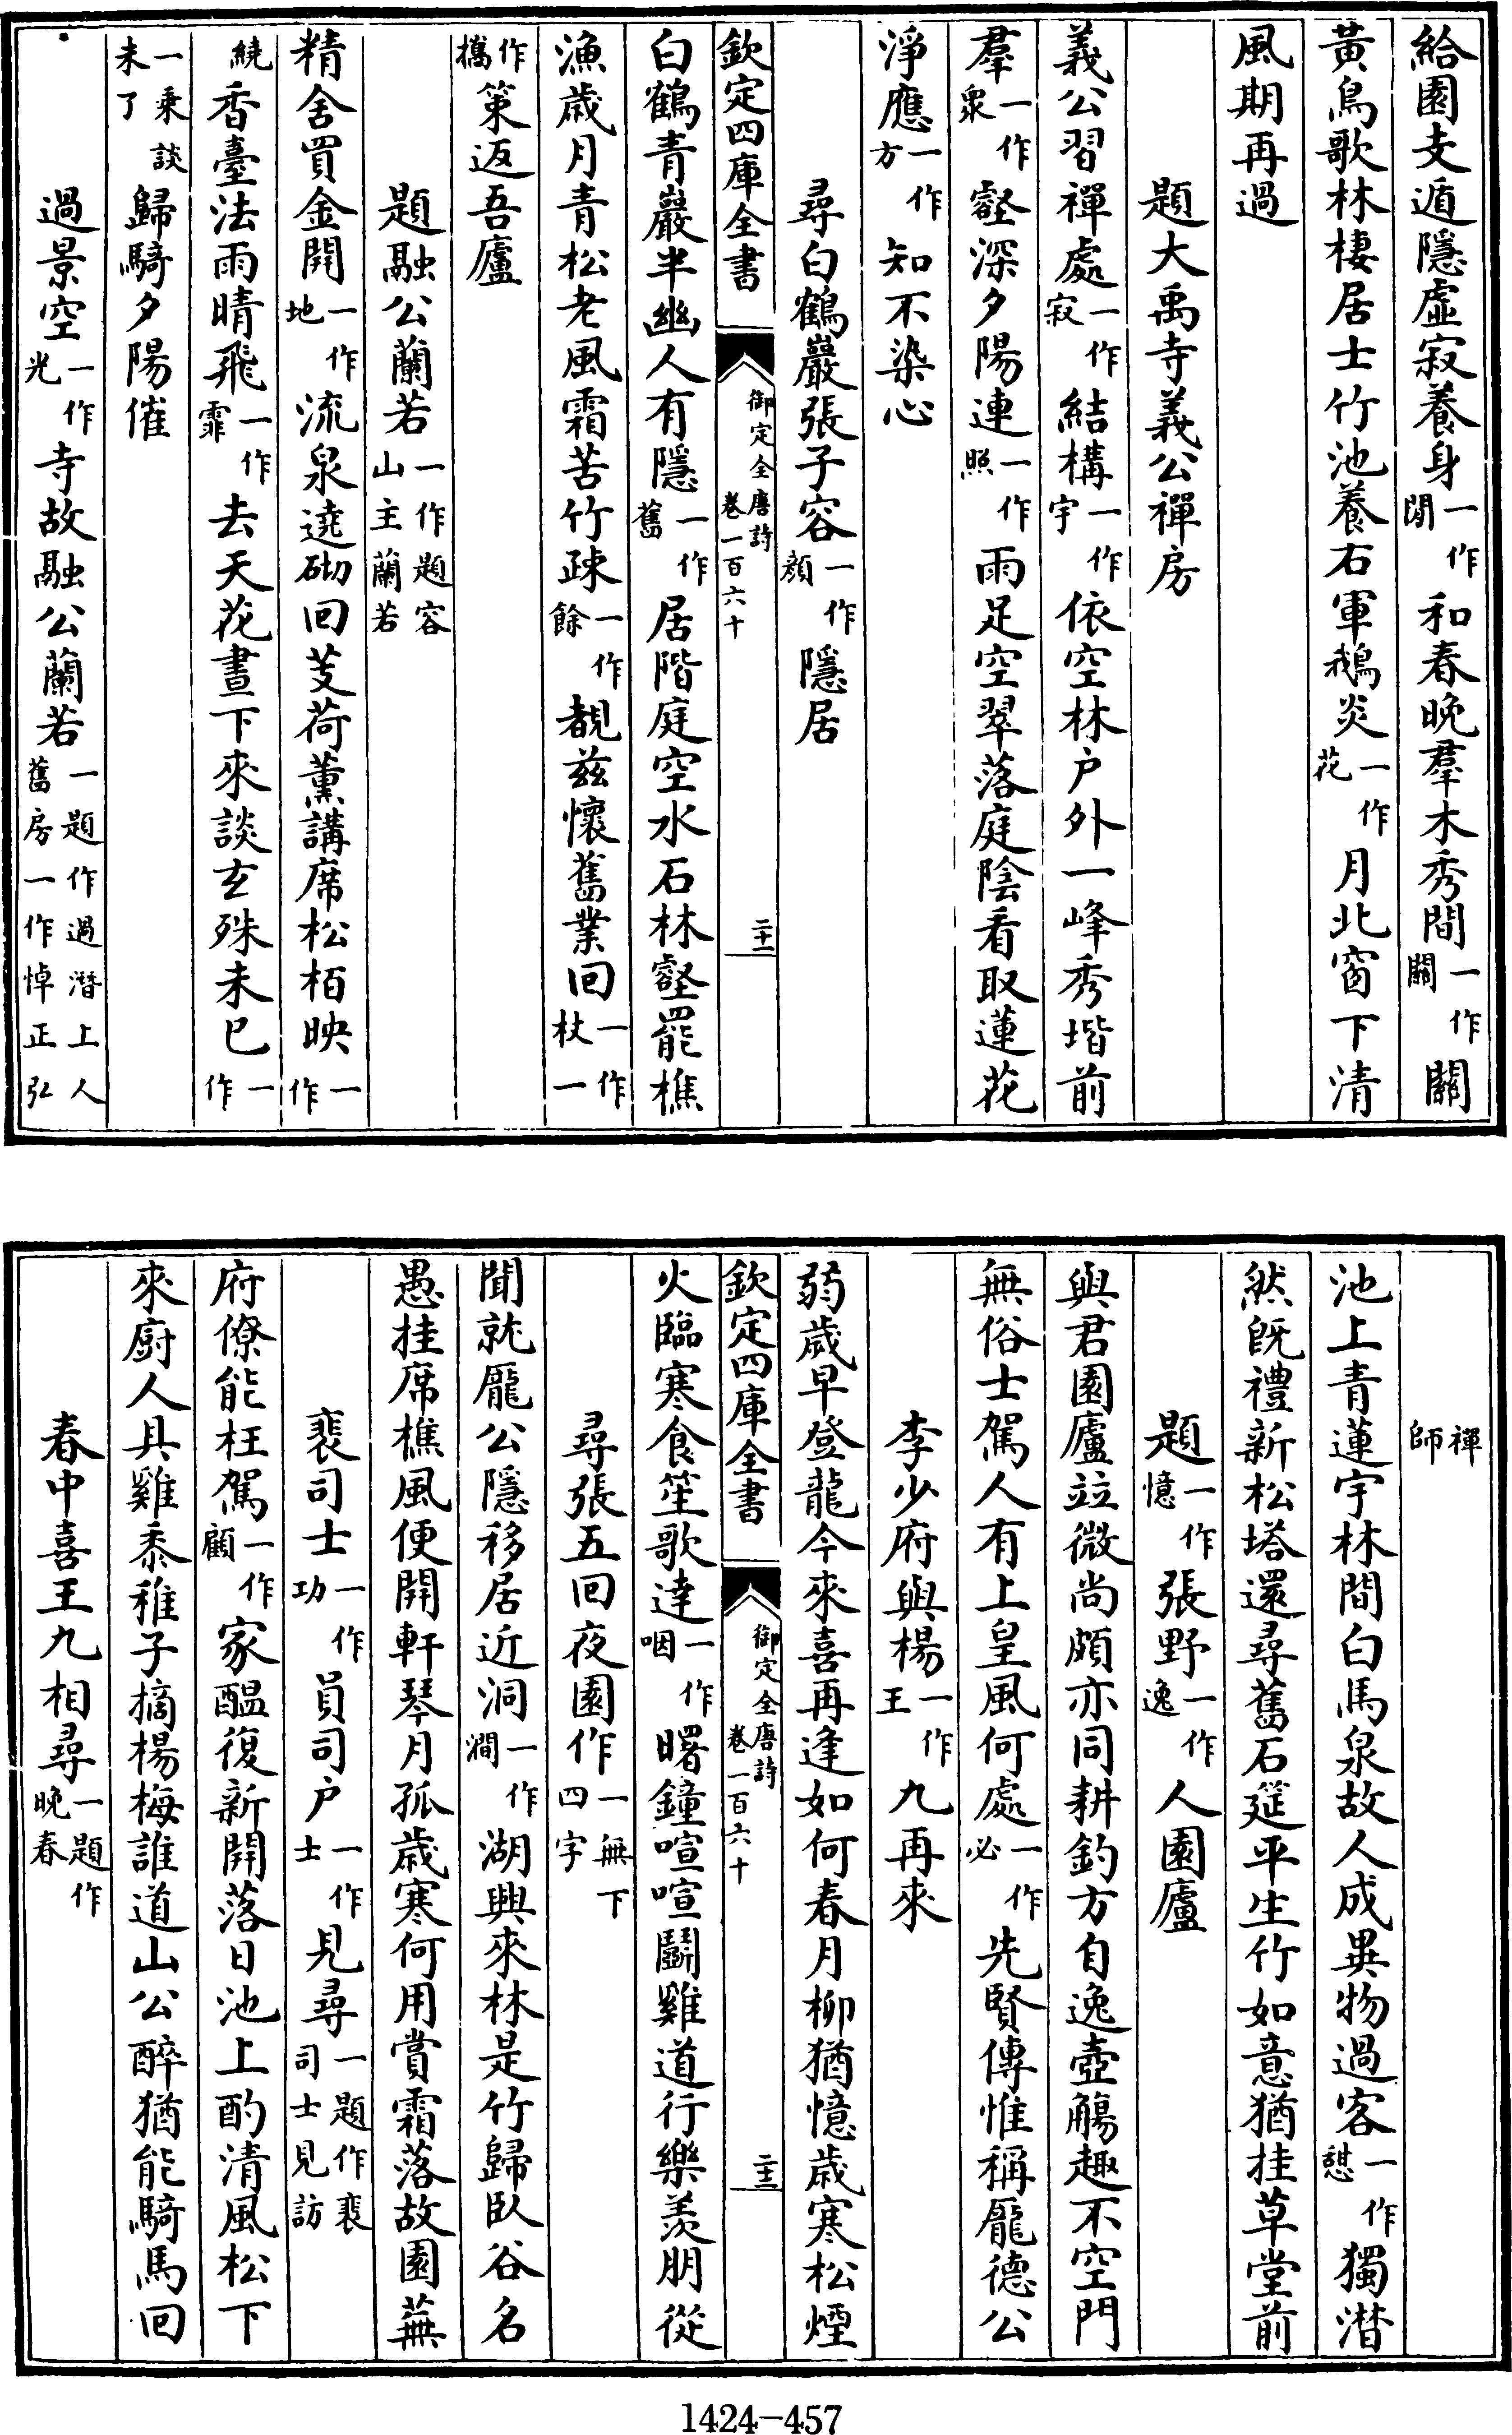 給園支遁隱虛寂養身一作閒和春晚羣木秀間一作關關
黃鳥歌林棲居士竹池養右軍鵝炎一作花月北窗下清
風期再過
題大禹寺義公禪房
義公習禪處一作寂結構一作宇依空林户外一峰秀堦前
羣一作衆壑深夕陽連一作照雨足空翠落庭陰看取蓮花
淨應一作方知不染心
尋白鶴巖張子容一作顔隱居
欽定四庫全書
御定全唐詩
卷一百六十
二十一
白鶴青巖半幽人有隱一作舊居階庭空水石林壑罷樵
漁歲月青松老風霜苦竹疎一作餘覩兹懷舊業回一作杖一
作攜策返吾廬
題融公蘭若一作題容山主蘭若
精舍買金開一作地流泉遶砌回芰荷薰講席松栢映一作
繞香臺法雨晴飛一作霏去天花晝下來談玄殊未已一作
一乘談未了歸騎夕陽催
過景空一作光寺故融公蘭若一題作過潛上人舊房一作悼正弘
禪師
池上青蓮宇林間白馬泉故人成異物過客一作憇獨潛
然旣禮新松塔還尋舊石筵平生竹如意猶挂草堂前
題一作憶張野一作逸人園廬
與君園廬竝微尚頗亦同耕釣方自逸壺觴趣不空門
無俗士駕人有上皇風何處一作必先賢傳惟稱龐德公
李少府與楊一作王九再來
弱歲早登龍今來喜再逢如何春月柳猶憶歲寒松煙
欽定四庫全書
御定全唐詩
卷一百六十
二十二
火臨寒食笙歌達一作咽曙鐘喧喧鬭雞道行樂羨朋從
尋張五回夜園作一無下四字
聞就龐公隱移居近洞一作澗湖興來林是竹歸臥谷名
愚挂席樵風便開軒琴月孤歲寒何用賞霜落故園蕪
裴司士一作功員司户一作士見尋一題作裴司士見訪
府僚能枉駕一作顧家醖復新開落日池上酌清風松下
來廚人具雞黍稚子摘楊梅誰道山公醉猶能騎馬回
春中喜王九相尋一題作晚春
1424-457